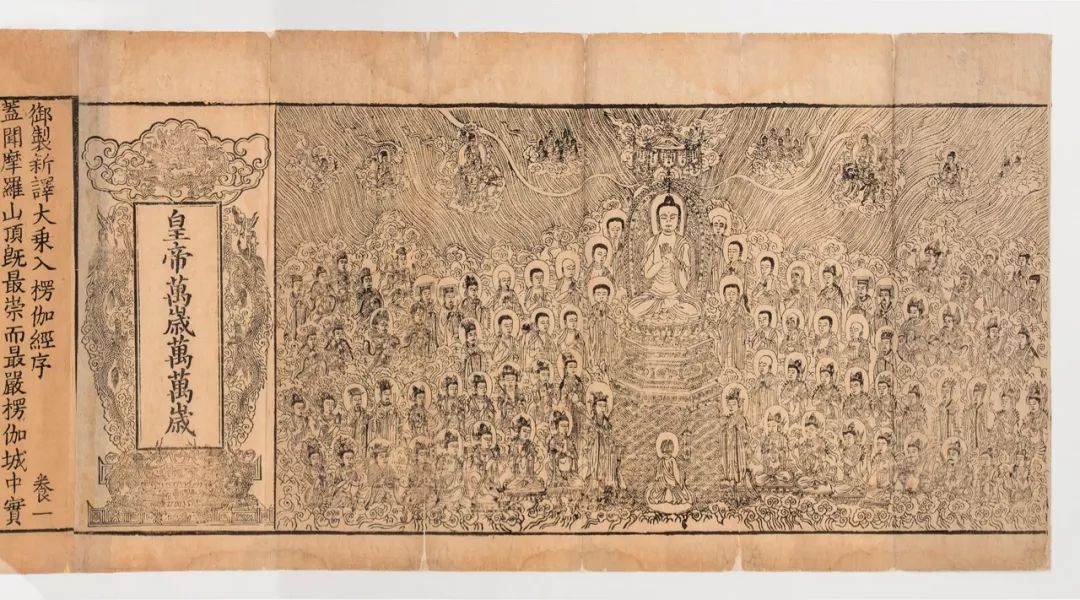 皇帝萬歲萬萬歲
御製新譯大乘入楞伽經序 飬一
蓋聞摩羅山頂旣最崇而最嚴楞伽城中實